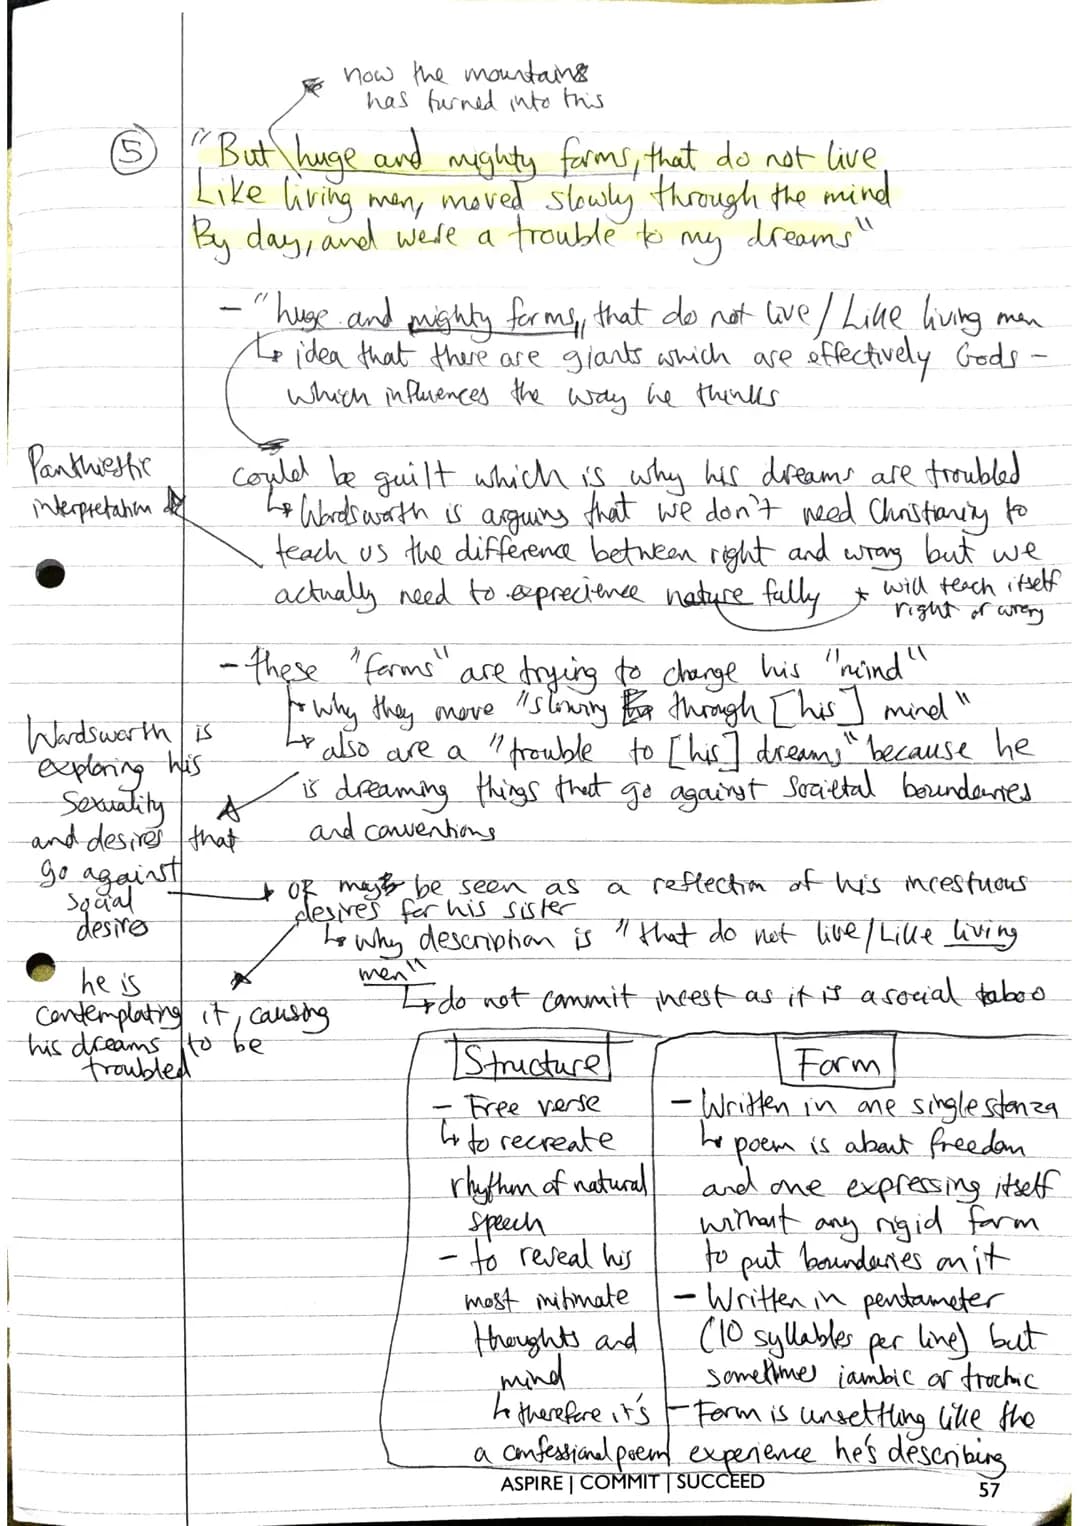 now the mountains
has turned into this
5
"But huge and mighty forms, that do not live
Like living men, moved slowly through the mind
By day, and were a trouble to my dreams"
- "huge and mighty forms, that do not live / Like living men
↳ idea that there are giants which are effectively Gods -
which influences the way he thinks
Panthiestic
interpretation
could be guilt which is why his dreams are troubled
↳ Wordsworth is arguing that we don't need Christianity to
teach us the difference between right and wrong but we
actually need to exprecience nature fully
* will teach itself
right or wrong
- these "forms" are trying to change his "mind"
↳ why they move "slowly through [his] mind"
↳ also are a "trouble to [his] dreams" because he
is dreaming things that go against societal boundaries
and conventions
Wordsworth is
exploring his
sexuality
and desires that
go against
social
desire
OR may be seen as a reflection of his incestuous
desires for his sister
↳ why description is "that do not live / Like living
men"
↳ do not commit incest as it is a social taboo
he is
contemplating it, causing
his dreams to be
troubled
Structure
- Free verse
↳ to recreate
rhythm of natural
speech
- to reveal his
most intimate
thoughts and
mind
↳ therefore it's
a confessional poem
Form
- Written in one single stanza
↳ poem is about freedom
and one expressing itself
without any rigid form
to put boundaries on it
- Written in pentameter
(10 syllables per line) but
sometimes iambic or trochic
- Form is unsettling like the
experience he's describing
ASPIRE | COMMIT | SUCCEED
57